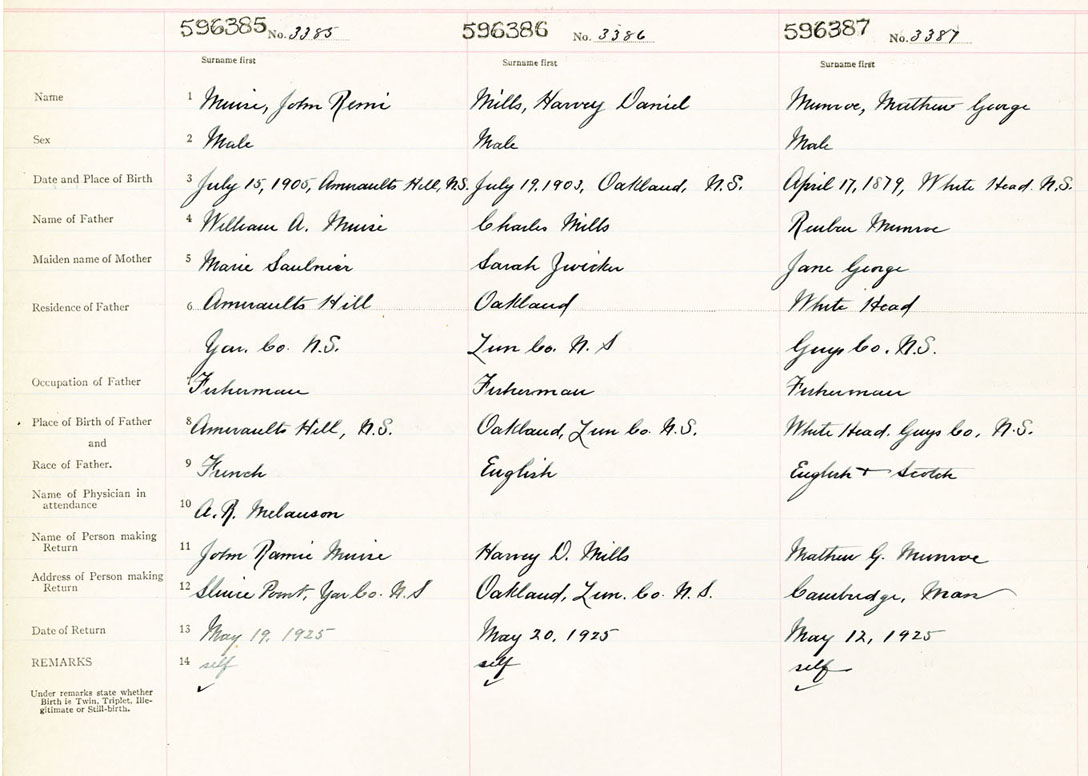 596385 No. 3385 596386 No. 3386 596387 No. 3387
Surname first Surname first Surname first
Name 1 Muise, John Remi Mills, Harvey Daniel Munroe, Mathew George
Sex 2 Male Male Male
Date and Place of Birth 3 July 15, 1905, Amiraults Hill, N.S. July 19, 1903, Oakland, N.S. April 17, 1879, White Head N.S.
Name of Father 4 William A. Muise Charles Mills Reuben Munroe
Maiden name of Mother 5 Marie Saulnier Sarah Zwicker Jane George
Residence of Father 6 Amiraults Hill Oakland White Head
Yar. Co. N.S. Lun Co. N. S Guys Co. N.S.
Occupation of Father 7 Fisherman Fisherman Fisherman
Place of Birth of Father 8 Amiraults Hill, N.S. Oakland, Lun Co. N.S. White Head. Guys Co. N.S.
and
Race of Father. 9 French English English + Scotch
Name of Physician in
attendance 10 A. R. Melanson
Name of Person making
Return 11 John Ramie Muise Harvey D. Mills Mathew G. Munroe
Address of Person making
Return 12 Sluice Point, Yar Co. N.S Oakland, Lun. Co. N.S. Cambridge, Mass
Date of Return 13 May 19, 1925 May 20, 1925 May 12, 1925
REMARKS 14 self self self
Under remarks state whether
Birth is Twin, Triplet, Ille-
gitimate or Still-birth.